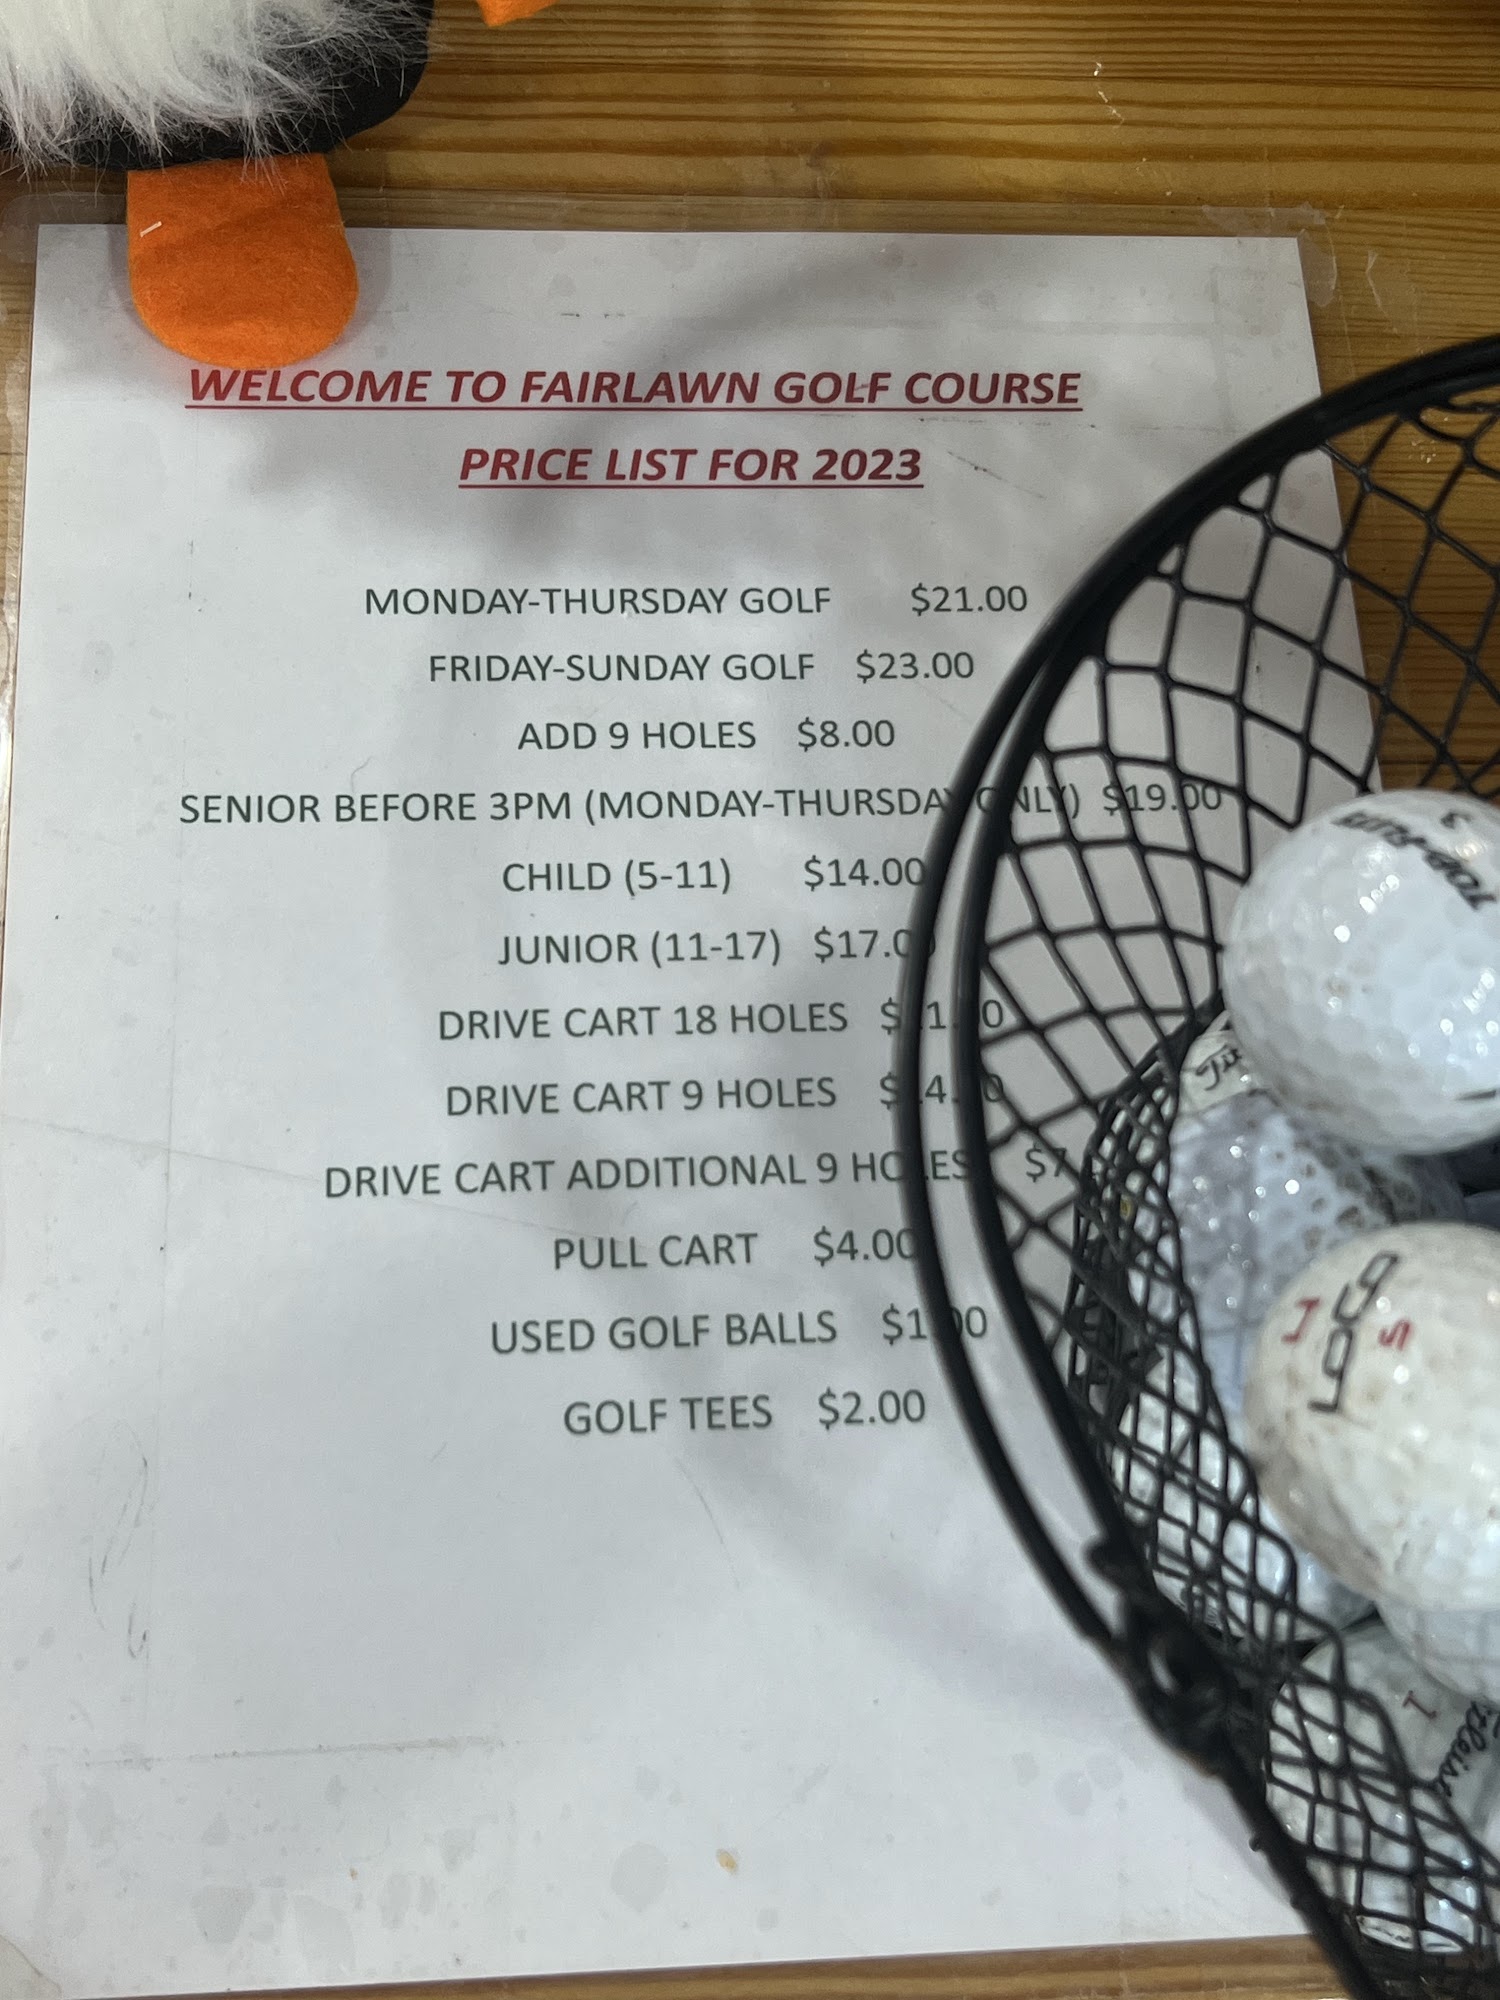 WELCOME TO FAIRLAWN GOLF COURSE
PRICE LIST FOR 2023
MONDAY-THURSDAY GOLF $21.00
FRIDAY-SUNDAY GOLF $23.00
ADD 9 HOLES $8.00
SENIOR BEFORE 3PM (MONDAY-THURSDAY ONLY) $19.00
CHILD (5-11) $14.00
JUNIOR (11-17) $17.00
DRIVE CART 18 HOLES
DRIVE CART 9 HOLES
DRIVE CART ADDITIONAL 9 HOLES
PULL CART $4.00
USED GOLF BALLS $1.00
GOLF TEES $2.00
TOP-FLITE
3
LOCO
Titleist
1